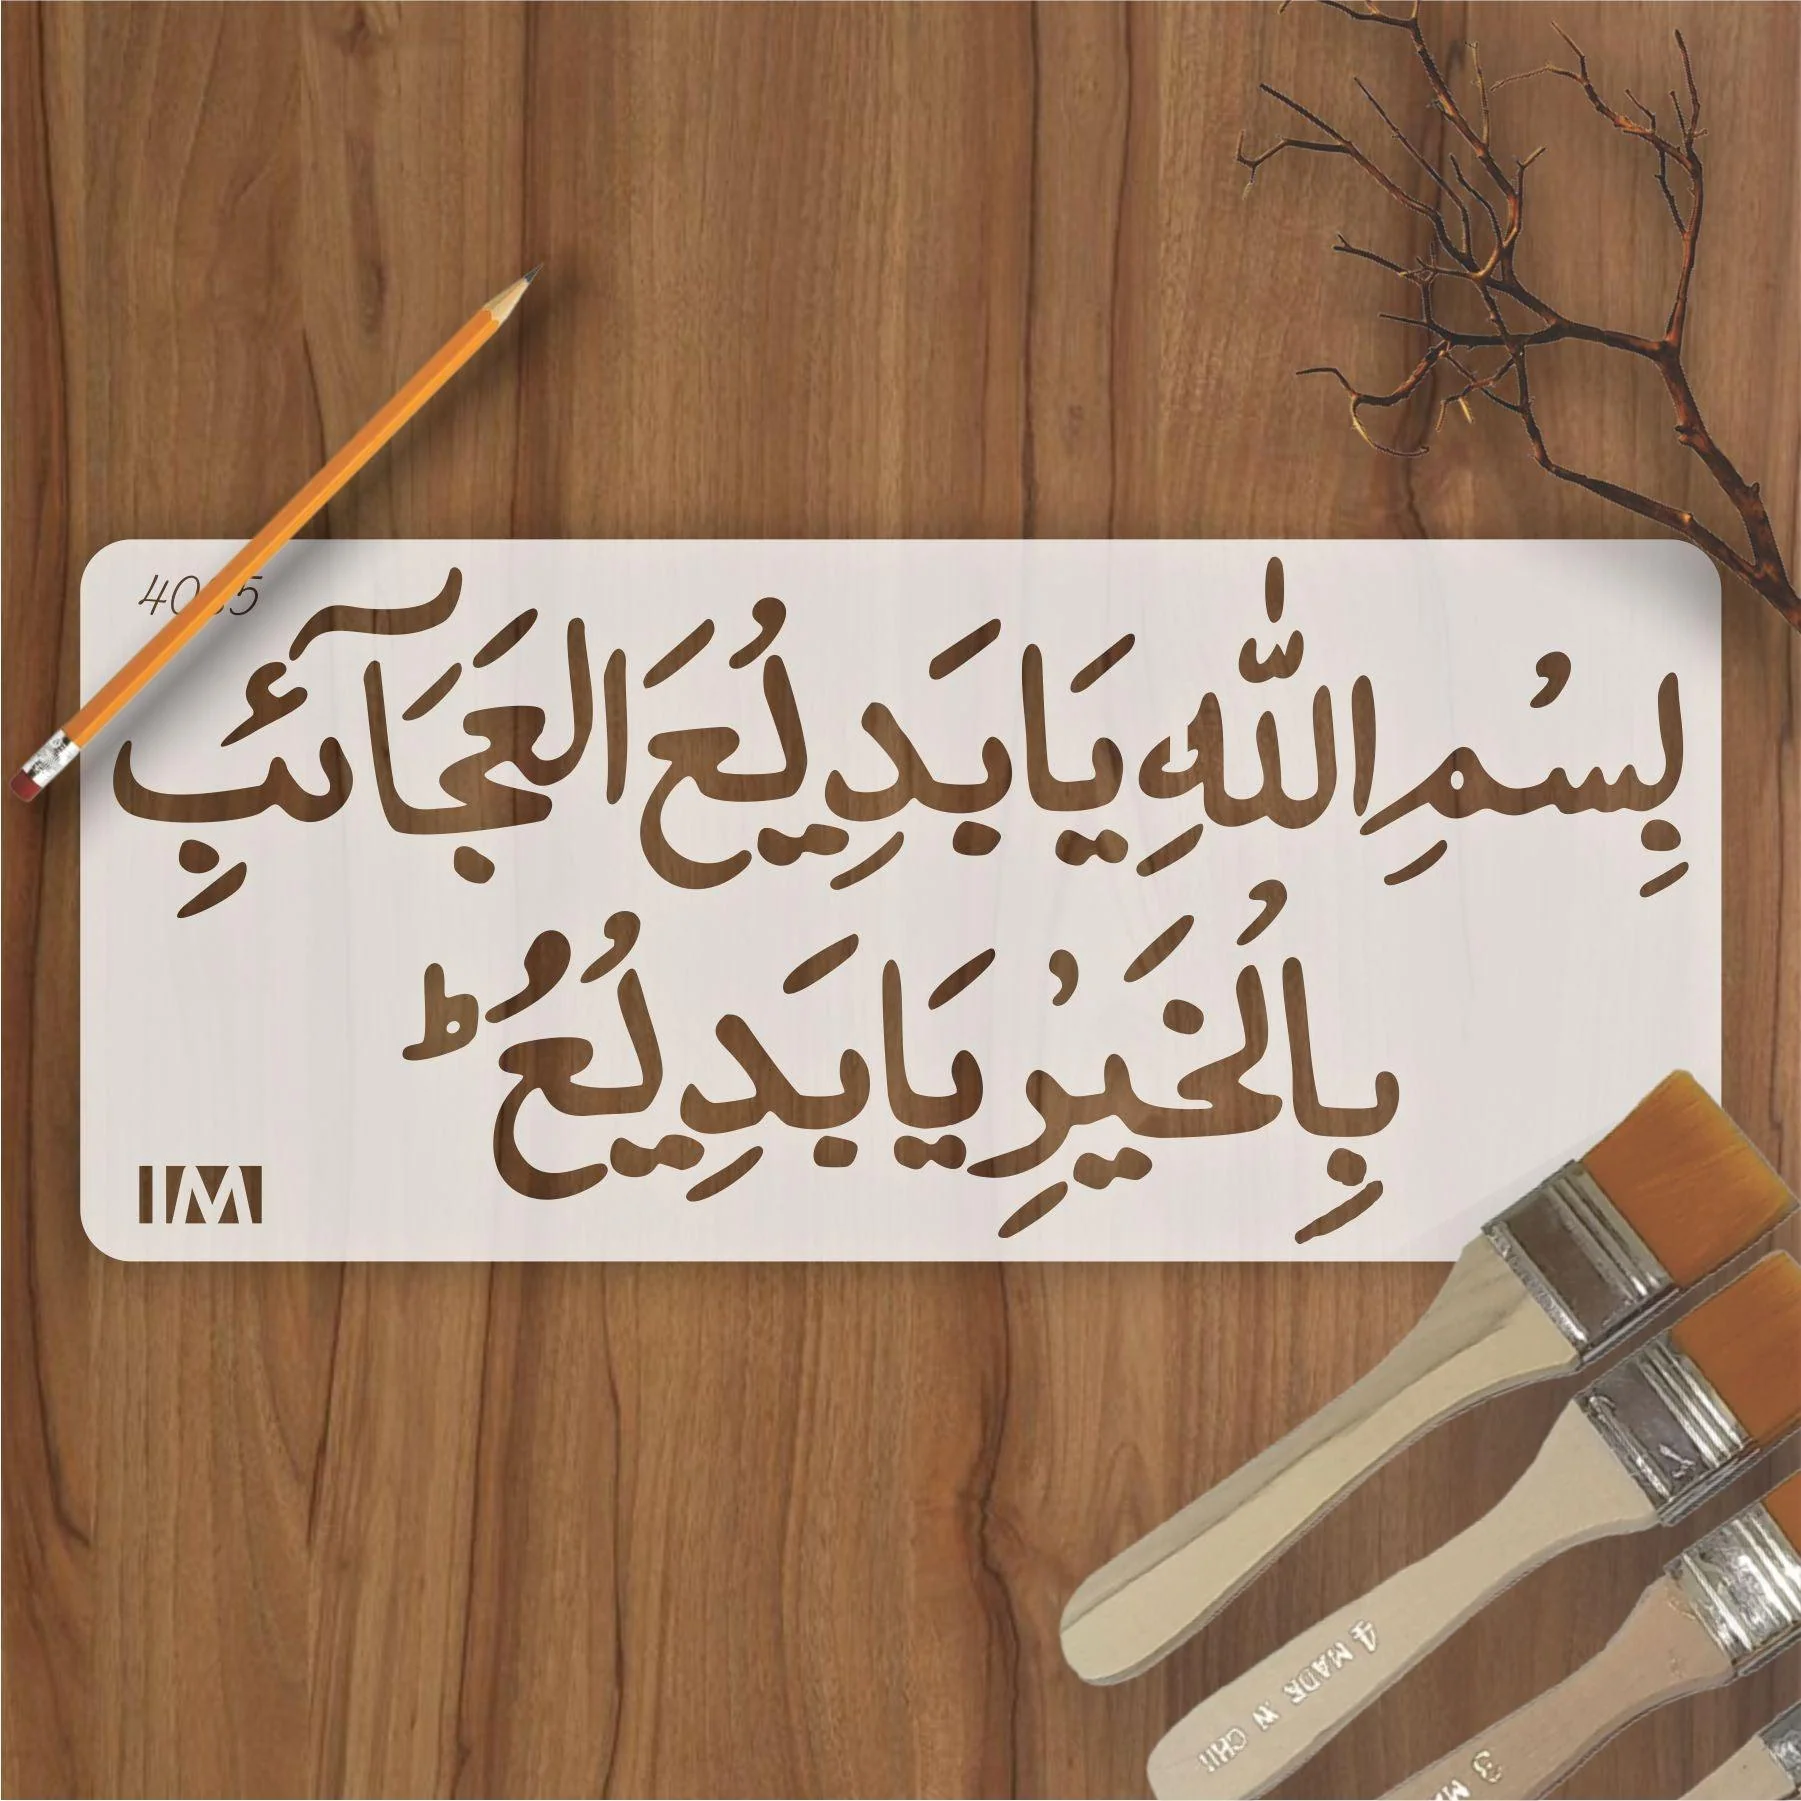 بِسْمِ اللّٰهِ يَا بَدِيْعَ العَجَآئبِ
بِالْخَيْرِ يَا بَدِيْعُ ؕ
IM
4 MADE IN CHI
3